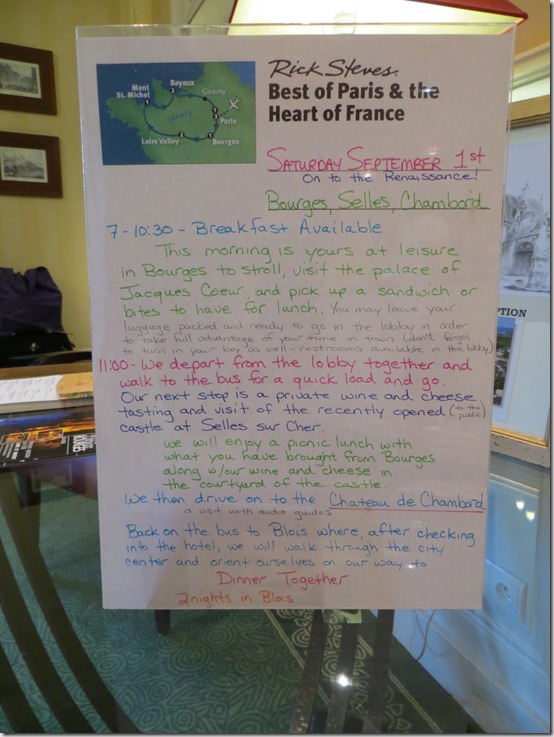 Mont
St. Michel
Bayeux
Giverny
FRANCE
Paris
Loire Valley
Bourges
Rick Steves.
Best of Paris & the
Heart of France
Saturday September 1st
On to the Renaissance!
Bourges, Selles, Chambord
7 - 10:30 - Breakfast Available
This morning is yours at leisure
in Bourges to stroll, visit the palace of
Jacques Coeur, and pick up a sandwich or
bites to have for lunch. You may leave your
luggage packed and ready to go in the lobby in order
to take full advantage of your time in town (don't forget
to turn in your key as well - restrooms available in the lobby)
11:00 - We depart from the lobby together and
walk to the bus for a quick load and go.
Our next stop is a private wine and cheese
tasting and visit of the recently opened (to the public)
castle at Selles sur Cher.
we will enjoy a picnic lunch with
what you have brought from Bourges
along w/our wine and cheese in
the courtyard of the castle.
We then drive on to the Chateau de Chambord
a visit with audio guides
Back on the bus to Blois where, after checking
into the hotel, we will walk through the city
center and orient ourselves on our way to
Dinner Together
2 nights in Blois
PTION